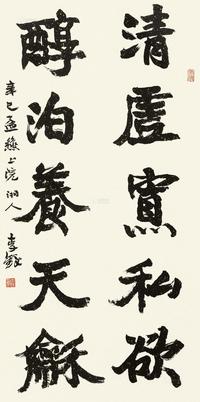 清虛寡私欲
醇泊養天龢
辛巳孟秋上浣湘人
李鐸